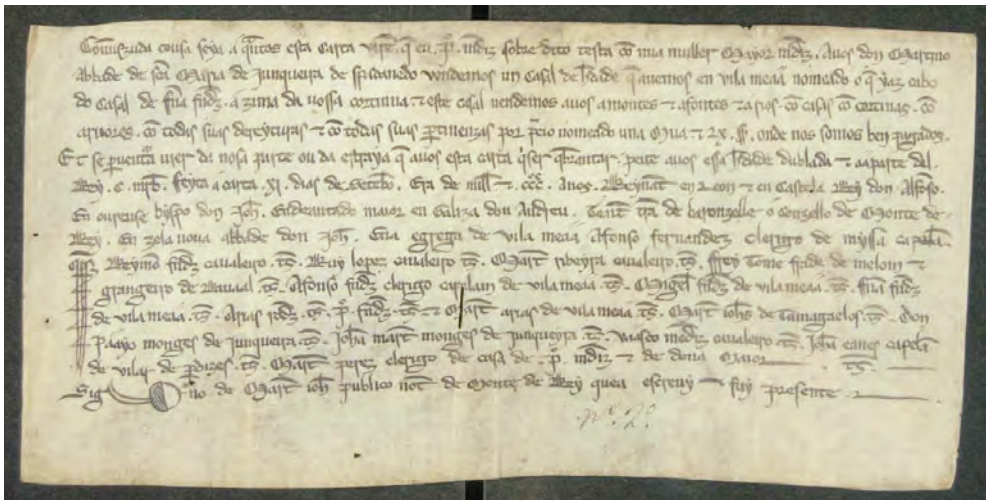 Coñuszuda cousa seya a qantos esta carta virē. q̄ eu. P. mēdz sobre dito testa cō mia muller Mayor mēdz. Auos don Martino
Abbade de sc̄a Maria de Junqueira de spadanedo vendemos un Casal de h̄dade q̄ auemos en vila meaa nomeado o q̄ yaz cabo
do Casal de fernā fn̄dz. a zima da uossa cortinna. ⁊ este casal uendemos auos a montes ⁊ a fontes ⁊ a rios. cō casas cō cortinas. cō
aruores. cō todas suas dereyturas ⁊ cō todas suas p̄tinenzas por p̄cio nomeado una Mua ⁊ Lx. ss. onde nos somos ben pagados.
Et se per uent̄a uier da nosa parte ou da estraya q̄ auos esta carta q̄ser q̄brantar. peite auos essa h̄dade dublada ⁊ aa parte del
Rey. c. mr̄b. feyta a carta. xi. dias de Setēbr̄o. Era de mill ⁊ ccc. Anos. Reynāt en Leon ⁊ en Castela Rey don Alfonso.
En ourense bispo don Joh̄. Endeantado maior en Galiza don Andreu. Tent̄ t̄ra de baronzelle o Conzello de Monte de
Rey. En zola noua abbade don Joh̄. Ena egrega de vila meaa Alfonso fernandez clerigo de myssa capelā.
Reymō fn̄dz caualeiro. ts̄. Ruy lopez caualeiro ts̄. Mart̄ ribeyra caualeiro. ts̄. ffrey Tome frade de meloin ⁊
grangeiro de ts̄. Alfonso fn̄dz clerigo capelam de vila meaa. ts̄. Miḡel fn̄dz de vila meaa. ts̄. fernā fn̄dz
de vila meaa. ts̄. Arias ts̄. P. fn̄dz. ts̄. ⁊ Mart̄ arias de vila meaa. ts̄. Mart̄ ioh̄s de Tamagaelos. ts̄. Don
Paayo monges de Junqueira. ts̄. Joh̄a mart̄ monges de Junqueyra. ts̄. Vasco mēdz caualeiro. ts̄. Joh̄a eanes capelā
de vilar de perdizes. ts̄. Mart̄ perez clerigo de casa de. P. mēdz ⁊ de dona Maior ts̄.
Sig no de Mart̄ ioh̄ publico not̄ de Monte de Rey que a escreuy ⁊ fuy presente.
nº 2º